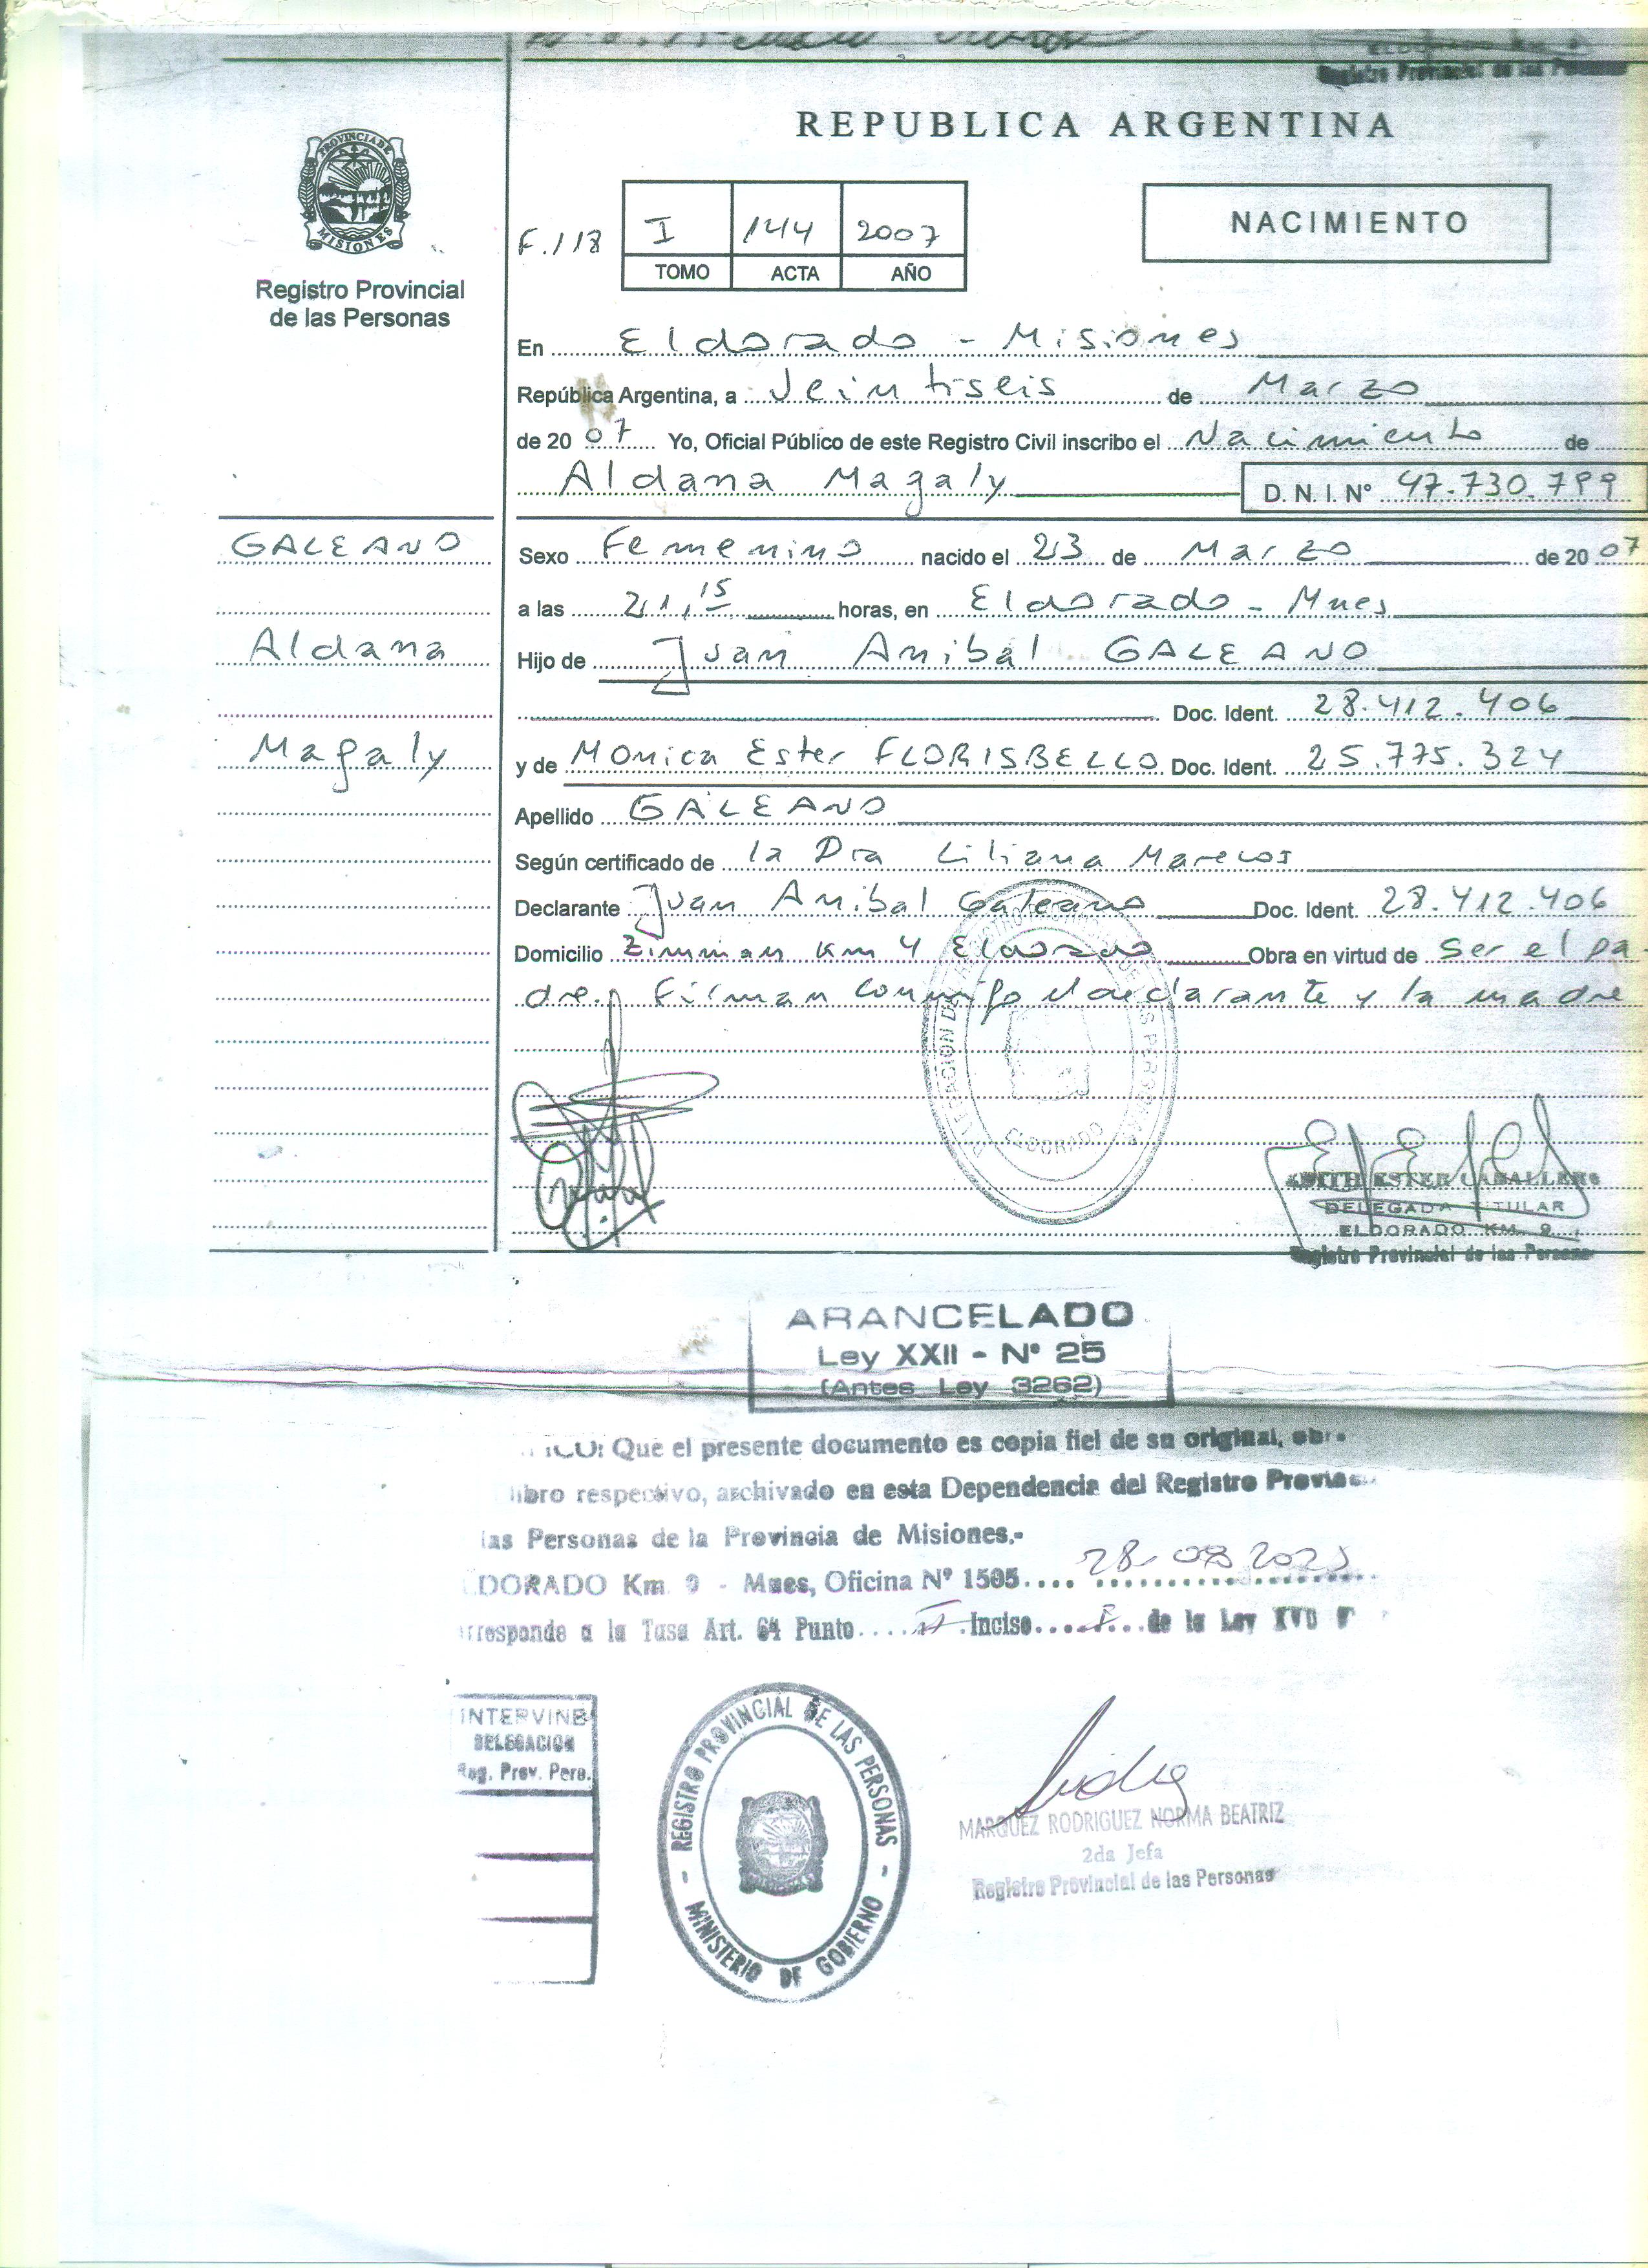 Registro Provincial de las Personas
REPUBLICA ARGENTINA
PROVINCIA DE
MISIONES
Registro Provincial
de las Personas
F. 118
I 144 2007
TOMO ACTA AÑO
NACIMIENTO
En Eldorado - Misiones
República Argentina, a Veintiseis de Marzo
de 2007 Yo, Oficial Público de este Registro Civil inscribo el Nacimiento de
Aldana Magaly D. N. I. Nº 47.730.799
GALEANO
Aldana
Magaly
Sexo Femenino nacido el 23 de Marzo de 2007
a las 21,15 horas, en Eldorado - Mnes
Hijo de Juan Anibal GALEANO
Doc. Ident. 28.412.406
y de Monica Ester FLORISBELLO Doc. Ident. 25.775.324
Apellido GALEANO
Según certificado de la Dra Liliana Marecos
Declarante Juan Anibal Galeano Doc. Ident. 28.412.406
Domicilio Zimman Km 4 Eldorado Obra en virtud de ser el pa-
dre. Firman conmigo el declarante y la madre
ELDORADO
EDITH ESTER CABALLERO
DELEGADA TITULAR
ELDORADO KM. 9
Registro Provincial de las Personas
ARANCELADO
Ley XXII - Nº 25
(Antes Ley 3262)
ICO: Que el presente documento es copia fiel de su original, obr
libro respectivo, archivado en esta Dependencia del Registro Provinc
las Personas de la Provincia de Misiones.-
DORADO Km 9 - Mnes, Oficina Nº 1505....
rresponde a la Tasa Art. 64 Punto .... Inciso .... de la Ley XVII
INTERVINE
DELEGACION
Reg. Prov. Pers.
REGISTRO PROVINCIAL DE LAS PERSONAS
- MINISTERIO DE GOBIERNO -
MARQUEZ RODRIGUEZ NORMA BEATRIZ
2da Jefa
Registro Provincial de las Personas